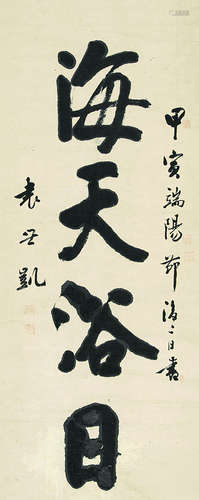 甲寅端陽節後二日書
海天浴日
袁世凱